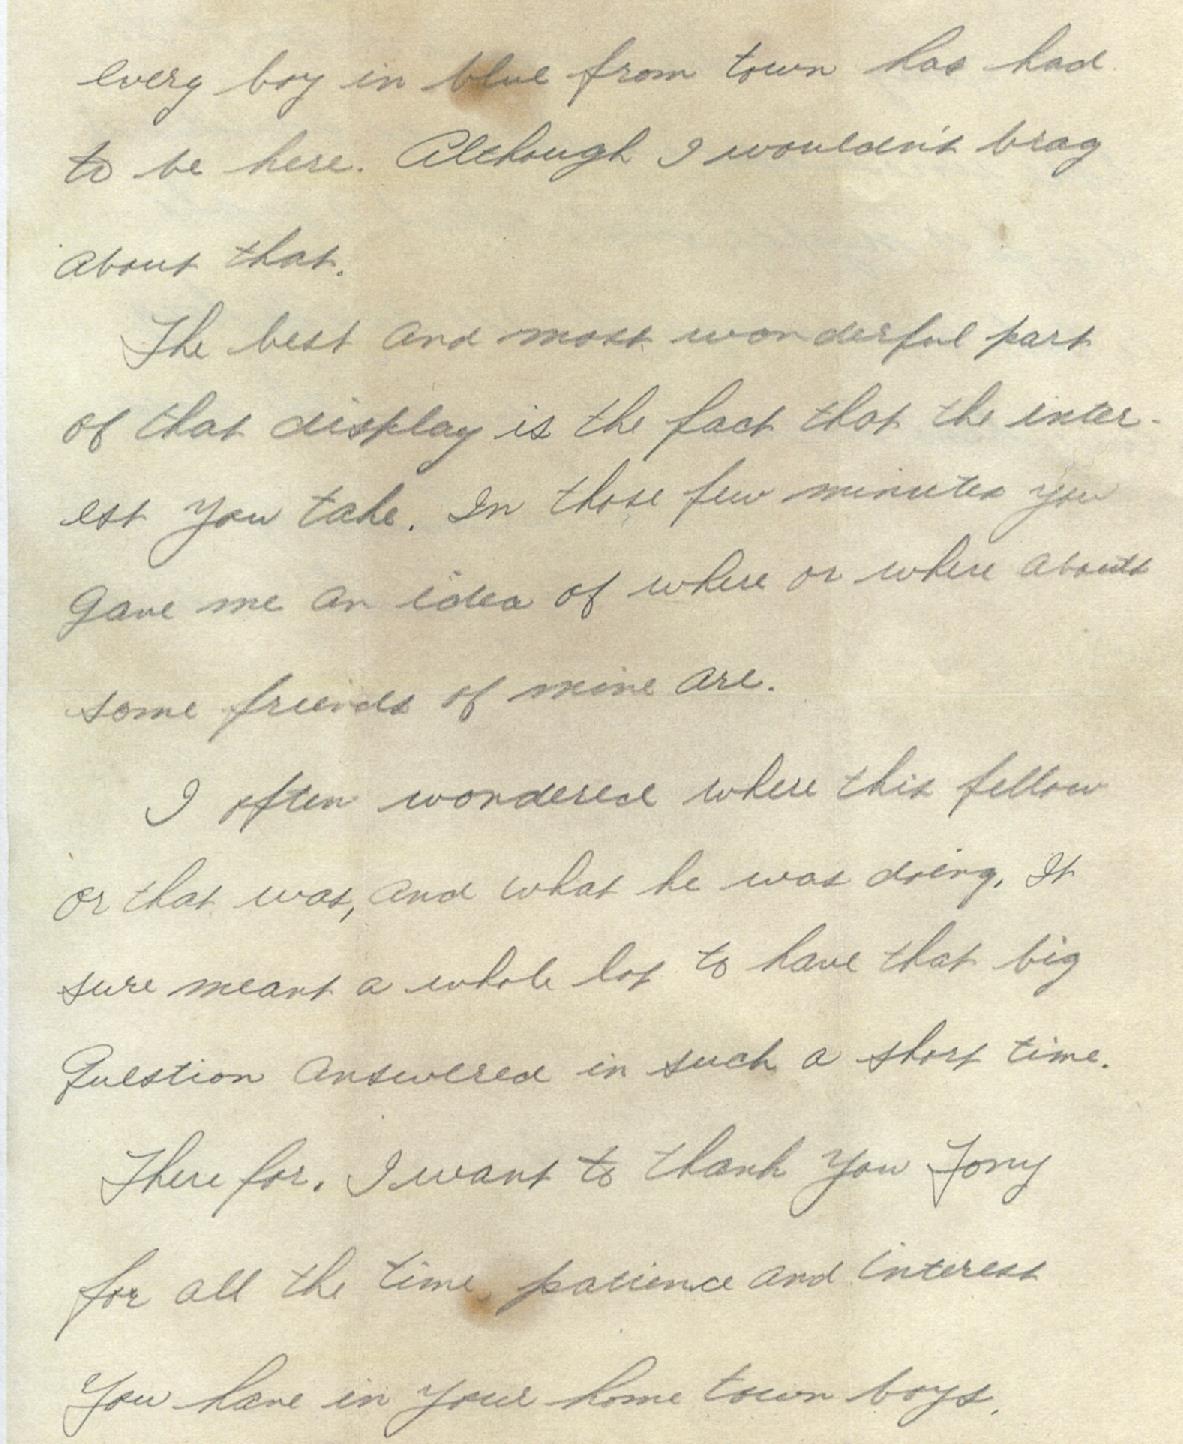 every boy in blue from town has had
to be here. Although I wouldn't brag
about that.
The best and most wonderful part
of that display is the fact that the inter-
est you take. In those few minutes you
gave me an idea of where or where abouts
some friends of mine are.
I often wondered where this fellow
or that was, and what he was doing. It
sure meant a whole lot to have that big
Question answered in such a short time.
There for. I want to thank you Tony
for all the time, patience and interest
You have in your home town boys.